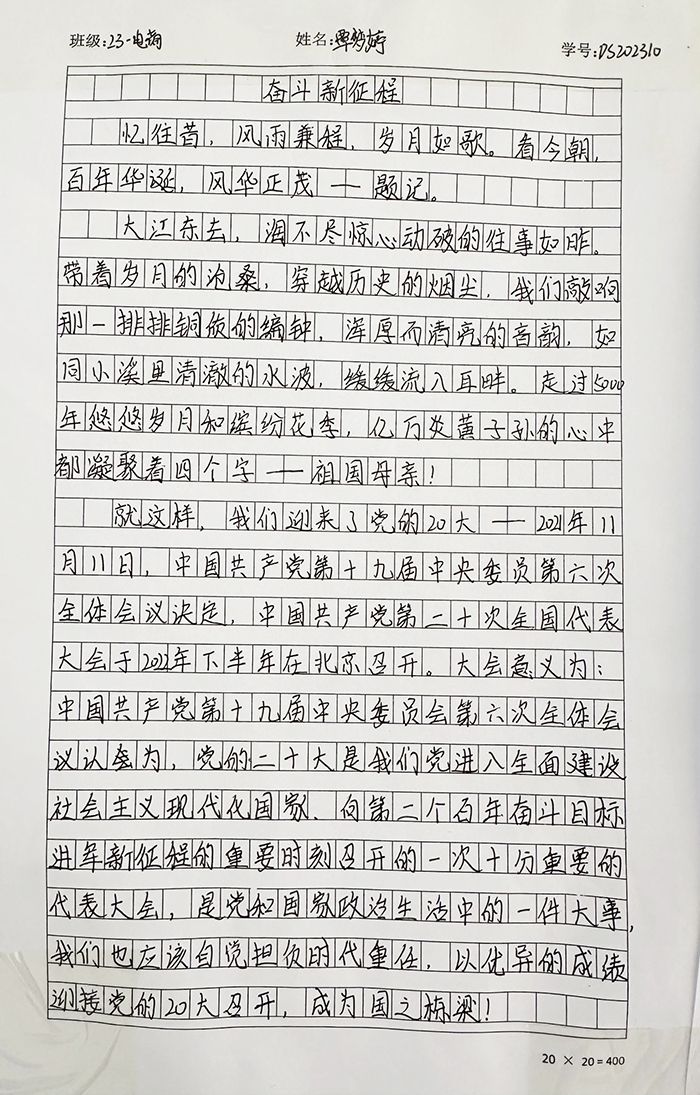 班级:23-电商 姓名:覃梦婷 学号:DS202310
奋斗新征程
忆往昔，风雨兼程，岁月如歌。看今朝，
百年华诞，风华正茂——题记。
大江东去，淘不尽惊心动破的往事如昨。
带着岁月的沧桑，穿越历史的烟尘，我们敲响
那一排排铜质的编钟，浑厚而清亮的音韵，如
同小溪里清澈的水波，缓缓流入耳畔。走过5000
年悠悠岁月和缤纷花季，亿万炎黄子孙的心中
都凝聚着四个字——祖国母亲！
就这样，我们迎来了党的20大——2021年11
月11日，中国共产党第十九届中央委员第六次
全体会议决定，中国共产党第二十次全国代表
大会于2022年下半年在北京召开。大会意义为：
中国共产党第十九届中央委员会第六次全体会
议认为，党的二十大是我们党进入全面建设
社会主义现代化国家、向第二个百年奋斗目标
进军新征程的重要时刻召开的一次十分重要的
代表大会，是党和国家政治生活中的一件大事，
我们也应该自觉担负时代重任，以优异的成绩
迎接党的20大召开，成为国之栋梁！
20 × 20=400